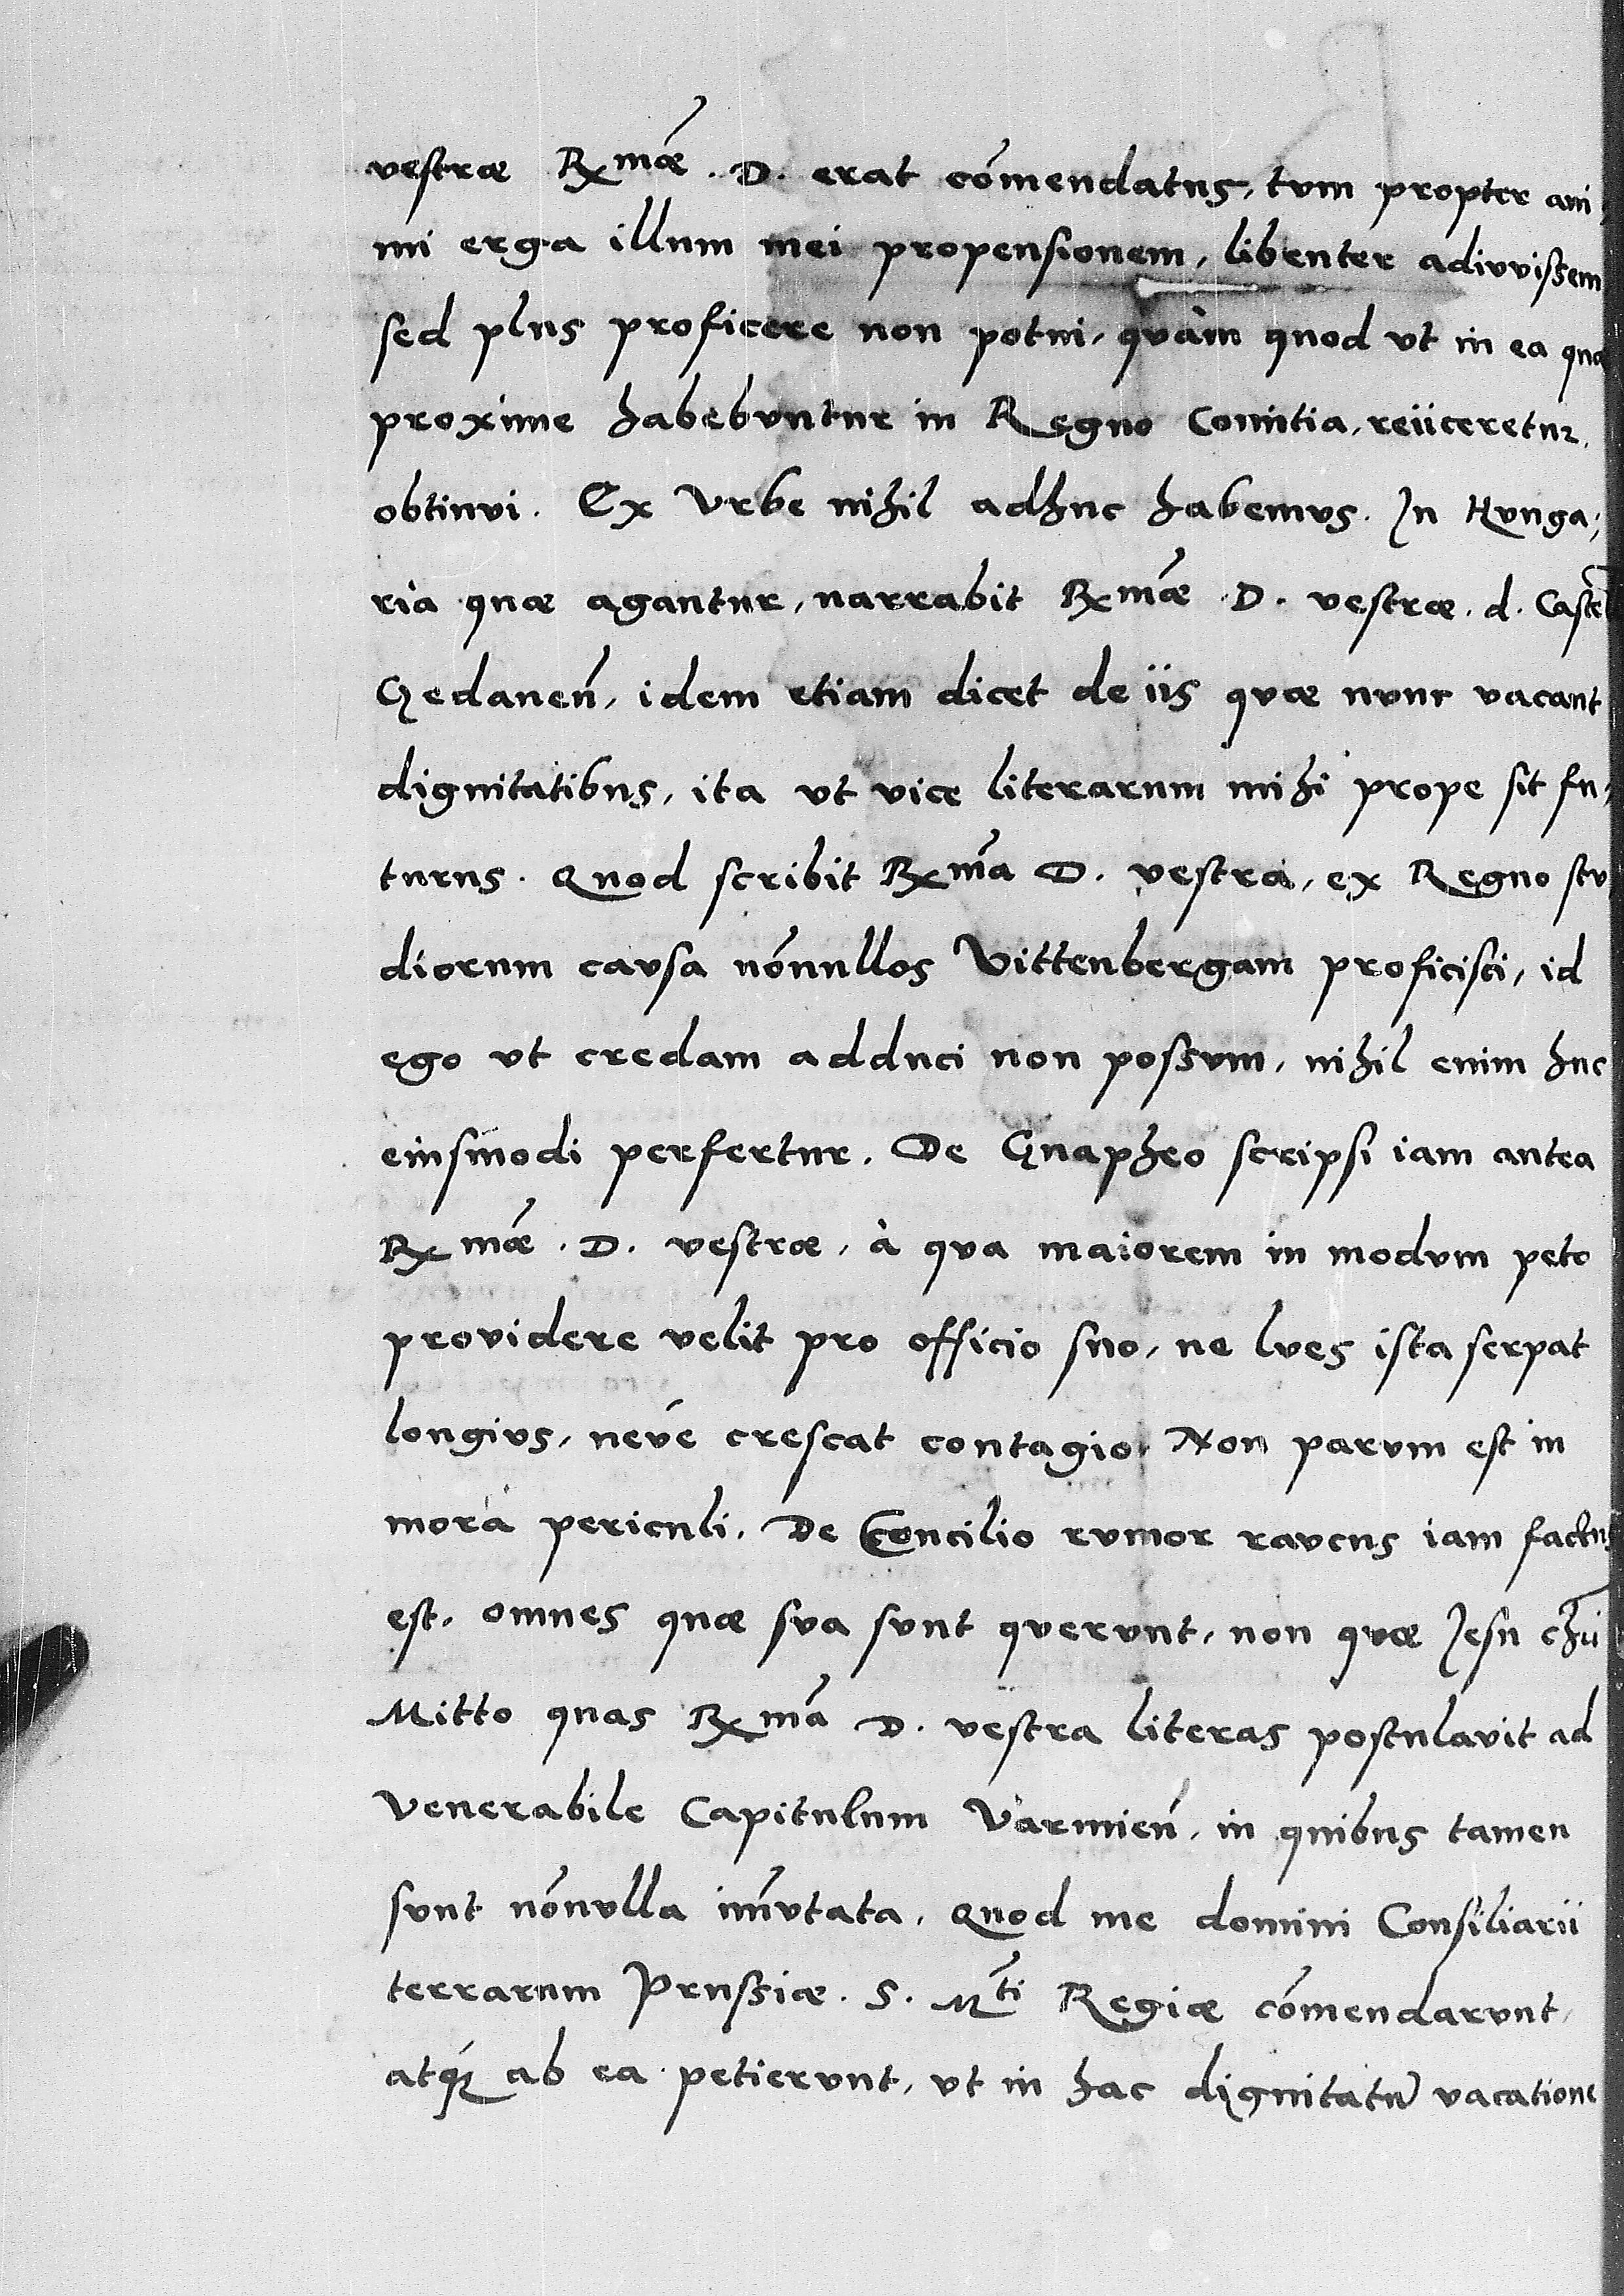 vestræ Rx mæ. D. erat cōmendatus, tum propter ani
mi erga illum mei propensionem, libenter adiuvissem
sed plus proficere non potui, quàm quod ut in ea quæ
proxime habebuntur in Regno Comitia, reiiceretur,
obtinui. Ex Urbe nihil adhuc habemus. In Hunga,
ria quæ agantur, narrabit Rx mæ D. vestræ. d. Castel
Gedaneñ, idem etiam dicet de iis quæ nunc vacant
dignitatibus, ita ut vice literarum mihi prope sit fu,
turus. Quod scribit Rx ma D. vestra, ex Regno stu
diorum causa nōnullos Vittenbergam proficisci, id
ego ut credam adduci non possum, nihil enim huc
eiusmodi perfertur. De Gnapheo scripsi iam antea
Rx mæ. D. vestræ, à qua maiorem in modum peto
providere velit pro officio suo, ne lues ista serpat
longius, neve crescat contagio. Non parum est in
mora periculi. De Concilio rumor raucus iam factus
est. omnes quæ sua sunt querunt, non quæ Jesu chri
Mitto quas Rx ma D. vestra literas postulavit ad
Venerabile Capitulum Varmieñ, in quibus tamen
sunt nōnulla im̄utata. Quod me domini Consiliarii
terrarum Prussiæ. S. Mti Regiæ cōmendarunt,
atq́ ab ea petierunt, ut in hac dignitatū vacatione